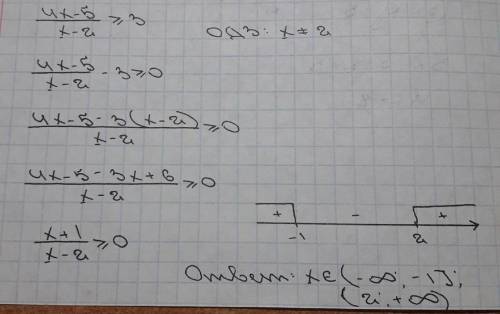 (4x-5)/(x-2) ≥ 3
ОДЗ: x ≠ 2
(4x-5)/(x-2) - 3 ≥ 0
(4x-5-3(x-2))/(x-2) ≥ 0
(4x-5-3x+6)/(x-2) ≥ 0
+ - +
-1 2
(x+1)/(x-2) ≥ 0
Ответ: x ∈ (-∞; -1];
(2; +∞)